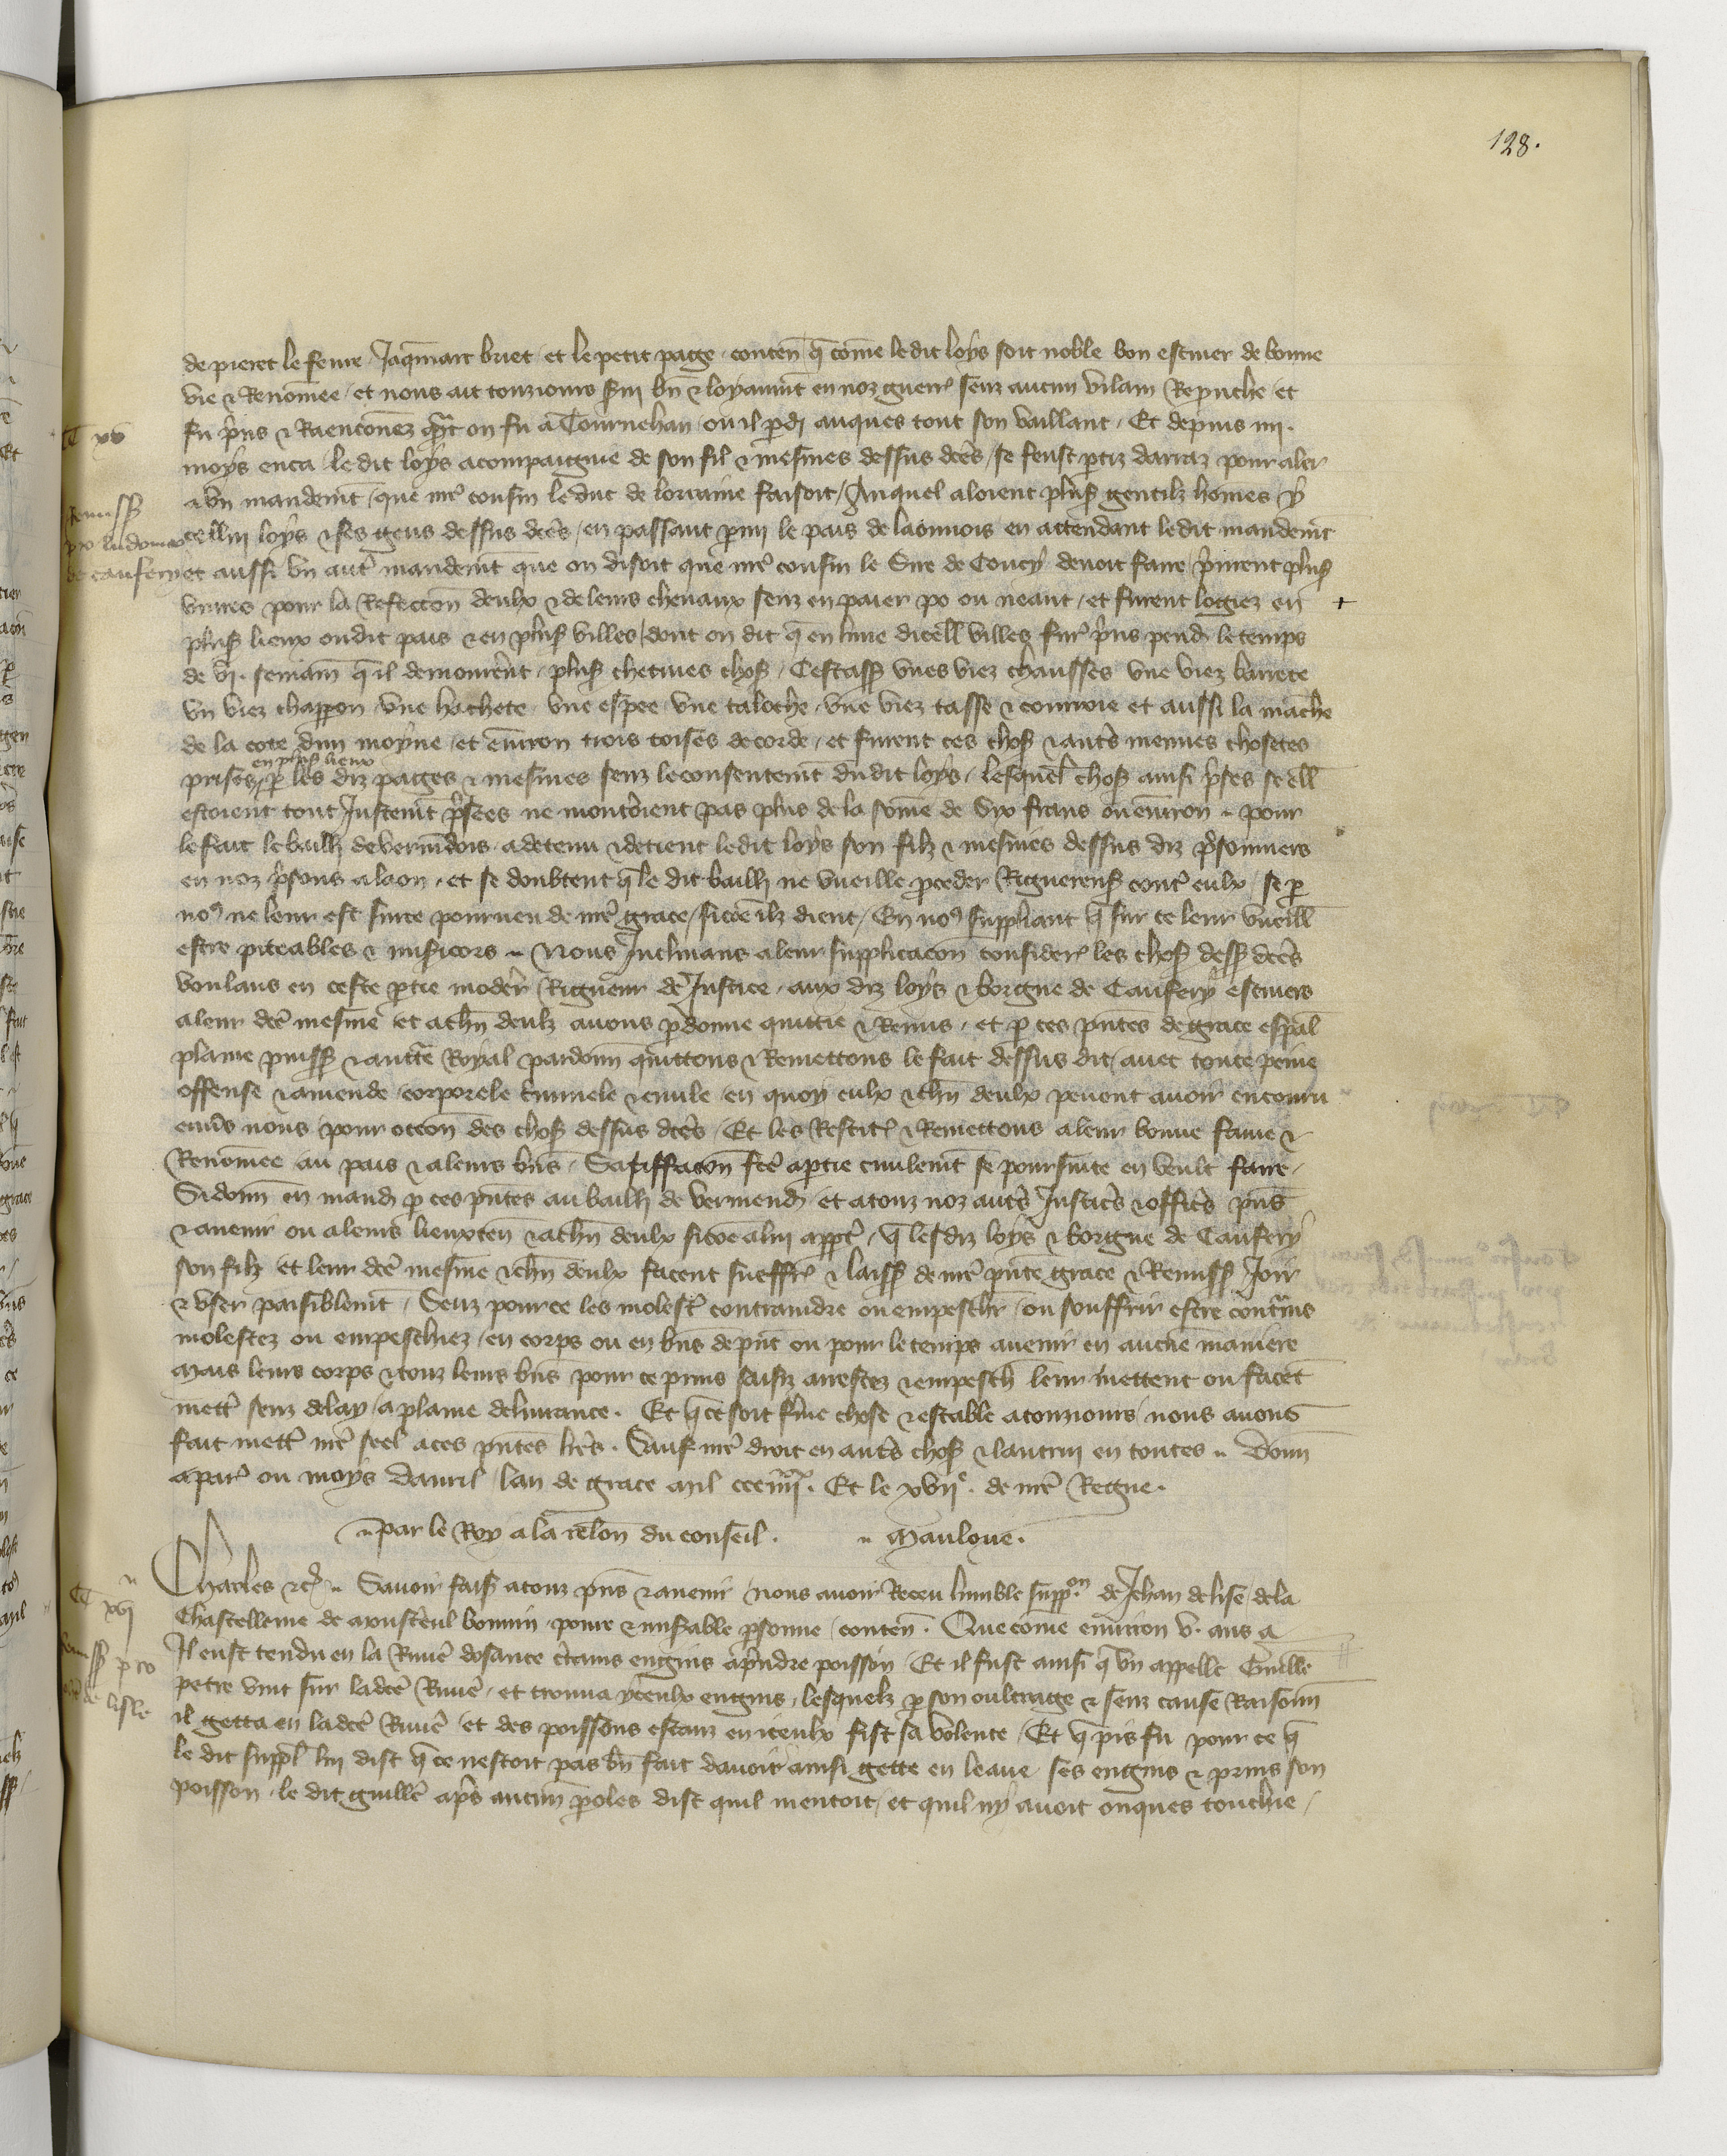 128.
de pieret le feure Jaqmart briet et le petit page conten q come ledit loys soit noble bon escuier de bonne
vie & Renomee et nous ait touzjours servi bn & loyaumt en noz guerr senz aucun vilain Reprouche et
fu prins & Raenconez qnt on fu a Tournehan ou il pdi auques tout son vaillant Et depuis iiij
CC xv
moys enca le dit loys acompaigne de son fil & mesmes dessus dcēs se feust ptiz darraz pour aler
a un mandemt que nre cousin le duc de lorraine faisoit Auquel aloient plus gentilz homes y
Remiss
cellui loys & ses gens dessus dcēs en passant pmi le pais de laonnois en attendant ledit mandemt
pro ludovico
de caufery
et aussi un autre mandemt que on disoit que nre cousin le Sire de Coucy devoit faire prirent plus
vivres pour la Refeccon deulx & de leurs chevaux senz en paier po ou neant et furent logiez en +
plus lieux oudit pais & en plus villes dont on dit q en lune dicell villes fur prins pend le temps
de vj semain q il demourent plus chetives chos Cestass unes viez chausses une viez barrete
un viez chapron une hachete une espee une taloche une viez tasse & couroie et aussi la manche
de la cote dun moyne et environ trois toises de corde et furent ces chos & autes menues chosetes
en plus lieux
prises p les diz pages & mesmes senz le consentemt dudit loys lesquel chos ainsi prises se ell
estoient tout Justemt prisees ne montoient pas plus de la some de dix frans ou environ pour
le fait le bailli de vermdois a detenu & detient ledit loys son filz & mesmes dessus diz prisonniers
en noz prisons a laon et se doubtent q le dit bailli ne vueille pceder Riguereus contre eulx se p
no9 ne leur est surce pourveu de nre grace sicoe ilz dient En no9 suppliant q sur ce leur vueill
estre piteables & misicors Nous Inclinans a leur supplicacon consider les chos dess dcēs
voulans en ceste ptie moderer Rigueur de Justice aux diz loys & borgne de Caufery escuiers
a leur dce mesmie et a chn deulz avons pdonne quittie & Remis et p ces pntes de grace espal
plaine puiss & aucte Royal pardonn quittons & Remettons le fait dessus dit avec toute peine
offense & amende corporele criminele & civile en quoy eulx & chn deulx pevent avoir encouru
envs nous pour occon des chos dessus dcēs Et les Restit & Remettons a leur bonne fame &
Renomee au pais & a leurs bns Satiffacon fce a ptie civilemt se poursuite en veult faire
Si donn en mand p ces pntes au bailli de vermend et a touz noz autes Justices & offices pns
& avenir ou a leurs lieuxten & a chn deulx sicoe a lui appt q lesdiz loys & borgne de Caufery
son filz et leur dce mesmie & chn deulx facent sueffr & laiss de nre pnte grace & Remiss Joir
& user paisiblemt Senz pource les molest contraindre ou empeschr ou souffrir estre contrains
molestez ou empeschiez en corps ou en bns de pnt ou pour le temps avenir en aucune maniere
Mais leurs corps & touz leurs bns pour ce prins saisiz arrestez & empesch leur mettent ou facet
mettr senz delay a plaine delivrance. Et q ce soit ferme chose & estable a touzjours nous avons
fait mettr nre seel a ces pntes lres. Sauf nre droit en autes chos & lautrui en toutes Donn
a par ou moys davril lan de grace mil ccc iiij xx. Et le xvij e. de nre Regne.
par le Roy a la relon du conseil. Mauloue.
Charles &c Savoir fais a touz pns & avenir nous avoir Receu lumble suppon de Jehan de lisle de la
CC xvj
Chastellenie de Monstereul bonnin povre & misable psonne conten. Que come environ v. ans a
Il eust tendu en la Rivie dosance crtains engins a prndre poisson Et il fust ainsi q un appelle Guille
Remiss pro
petre vint sur ladce Rivie et trouva yceulx engins lesquelz p son oultrage & senz cause Raisonn
de lisle
il getta en ladce Rivie et des poissons estanz en iceulx fist sa volente Et q pis fu pour ce q
le dit suppl lui dist q ce nestoit pas bn fait davoir ainsi gette en leaue ses engins & prins son
poisson le dit guille aprs aucun poles dist quil mentoit et quil ny avoit onques touchie